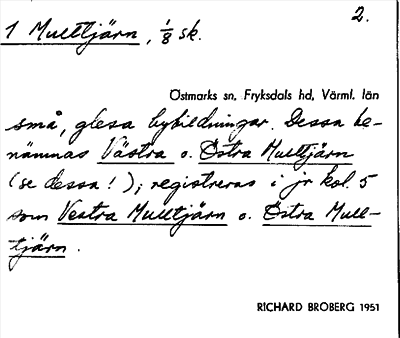 2.
1 Mulltjärn, 1/8 sk.
Östmarks sn, Fryksdals hd, Värml. län
små, glesa bybildningar. Dessa be-
nämnas Västra o. Östra Mulltjärn
(se dessa!); registreras i jr kol. 5
som Vestra Mulltjärn o. Östra Mull-
tjärn.
RICHARD BROBERG 1951